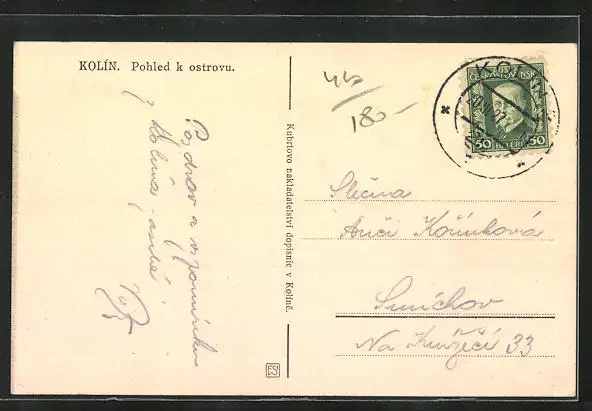 KOLÍN. Pohled k ostrovu.
Pozdrav a vzpomínku
z Kolína
Kubrtovo nakladatelství dopisnic v Kolíně.
180-
ČESKOSLOVENSKO
50 HALÉŘŮ 50
Slečna
Anči Kořínková
Smíchov
Na Knížecí 33